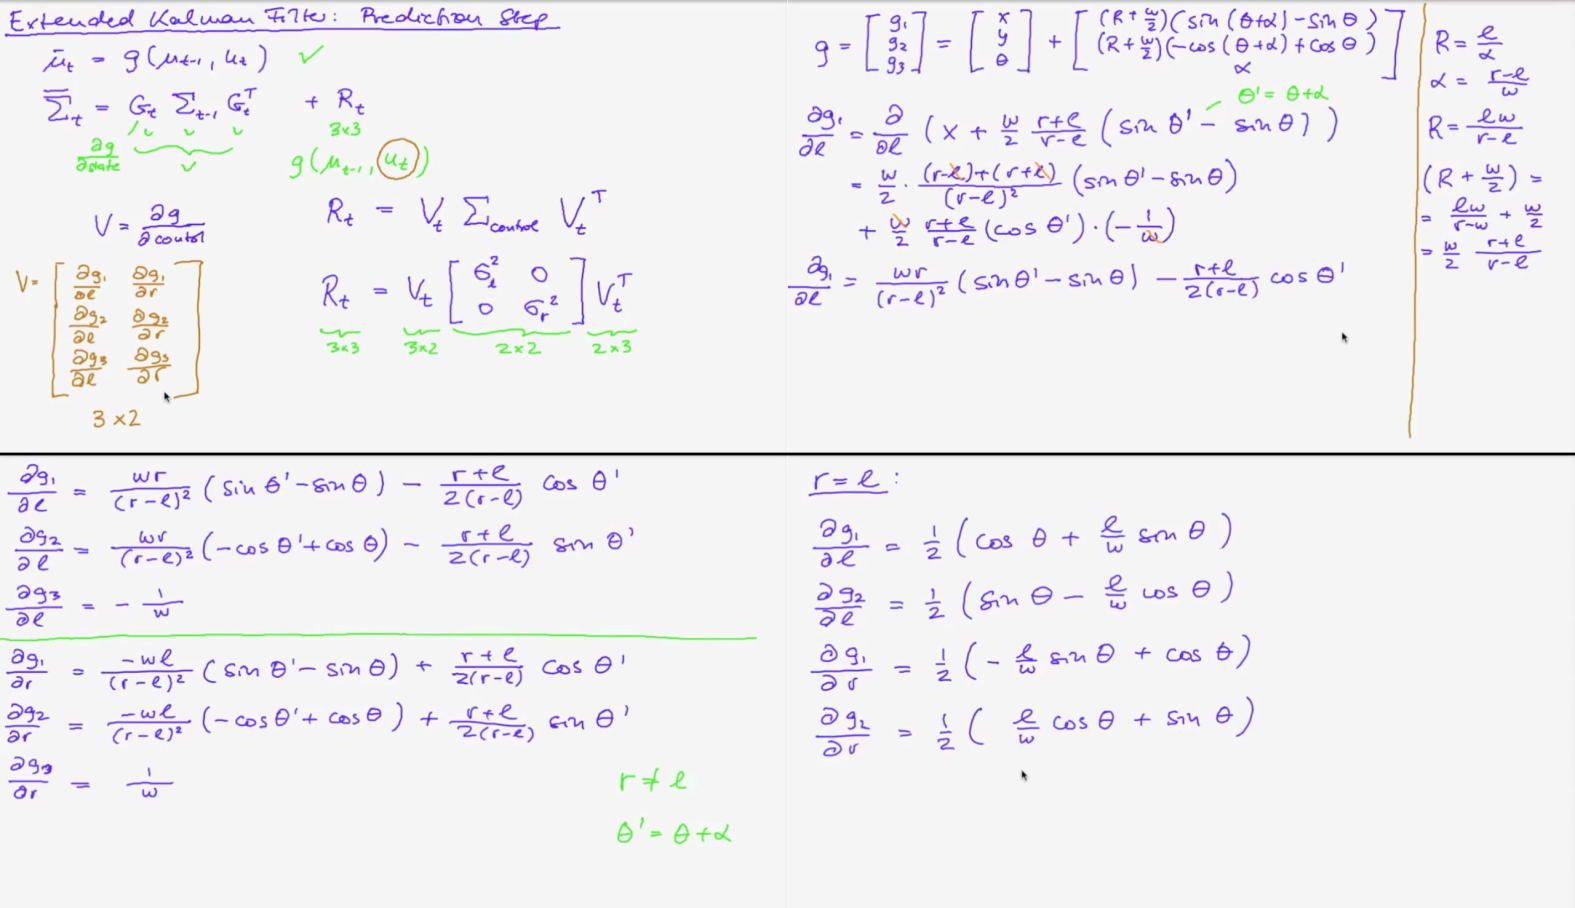 Extended Kalman Filter: Prediction Step
μ̄ₜ = g(μₜ₋₁, uₜ) ✓
Σ̄ₜ = Gₜ Σₜ₋₁ Gₜᵀ + Rₜ
3×3
∂g/∂state
g(μₜ₋₁, uₜ)
V = ∂g/∂control
Rₜ = Vₜ Σcontrol Vₜᵀ
V = [ ∂g₁/∂l ∂g₁/∂r
∂g₂/∂l ∂g₂/∂r
∂g₃/∂l ∂g₃/∂r ]
3×2
Rₜ = Vₜ [ σₗ² 0
0 σᵣ² ] Vₜᵀ
3×3 3×2 2×2 2×3
g = [ g₁ g₂ g₃ ] = [ x y θ ] + [ (R + w/2)(sin(θ+α) − sin θ)
(R + w/2)(−cos(θ+α) + cos θ)
α ]
θ' = θ+α
∂g₁/∂l = ∂/∂l (x + w/2 r+l/r−l (sin θ' − sin θ))
= w/2 · (r−l)+(r+l)/(r−l)² (sin θ' − sin θ)
+ w/2 r+l/r−l (cos θ') · (−1/w)
∂g₁/∂l = wr/(r−l)² (sin θ' − sin θ) − r+l/2(r−l) cos θ'
R = l/α
α = r−l/w
R = lw/r−l
(R + w/2) =
= lw/r−w + w/2
= w/2 r+l/r−l
∂g₁/∂l = wr/(r−l)² (sin θ' − sin θ) − r+l/2(r−l) cos θ'
∂g₂/∂l = wr/(r−l)² (−cos θ' + cos θ) − r+l/2(r−l) sin θ'
∂g₃/∂l = − 1/w
∂g₁/∂r = −wl/(r−l)² (sin θ' − sin θ) + r+l/2(r−l) cos θ'
∂g₂/∂r = −wl/(r−l)² (−cos θ' + cos θ) + r+l/2(r−l) sin θ'
∂g₃/∂r = 1/w
r ≠ l
θ' = θ+α
r = l :
∂g₁/∂l = 1/2 (cos θ + l/w sin θ)
∂g₂/∂l = 1/2 (sin θ − l/w cos θ)
∂g₁/∂r = 1/2 (− l/w sin θ + cos θ)
∂g₂/∂r = 1/2 ( l/w cos θ + sin θ)